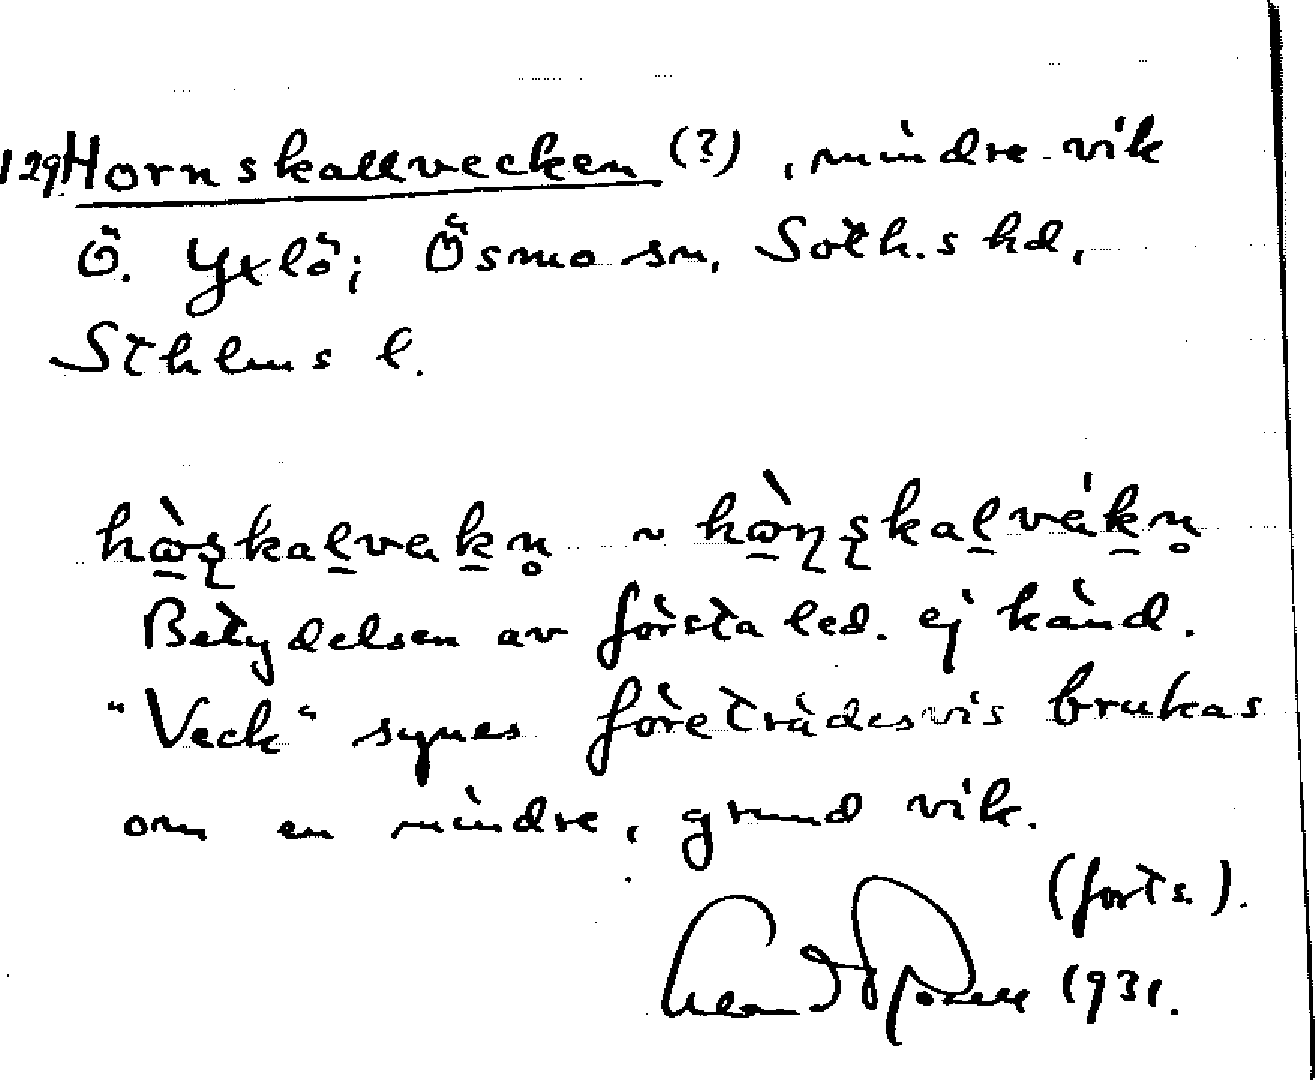 129 Hornskallvecken (?), mindre vik
Ö. Yxlö; Ösmo sn, Soth.s hd,
Sthlms l.
hὼʂkaḻveḵn̥ ~ hὼɳʂkaḻvéḵn̥
Betydelsen av första led. ej känd.
"Veck" synes företrädesvis brukas
om en mindre, grund vik.
(forts.).
1931.